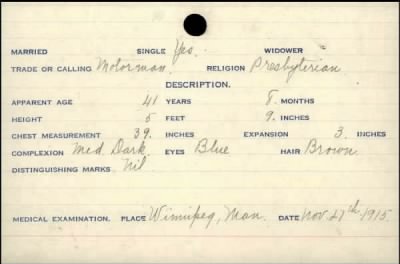 MARRIED SINGLE Yes. WIDOWER
TRADE OR CALLING Motorman. RELIGION Presbyterian
DESCRIPTION.
APPARENT AGE 41 YEARS 8. MONTHS
HEIGHT 5 FEET 9. INCHES
CHEST MEASUREMENT 39. INCHES EXPANSION 3. INCHES
COMPLEXION Med. Dark. EYES Blue HAIR Brown.
DISTINGUISHING MARKS Nil
MEDICAL EXAMINATION. PLACE Winnipeg, Man. DATE Nov. 27th 1915.